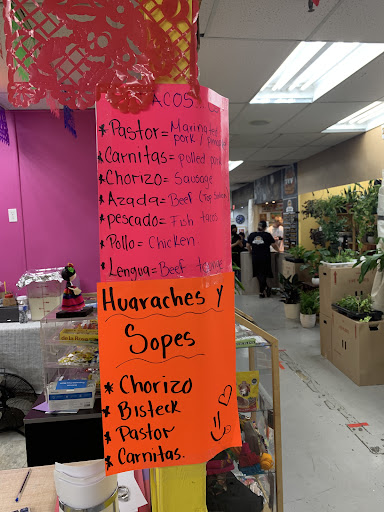 TACOS
* Pastor= Marinated
pork /
* Carnitas= pulled pork
* Chorizo= Sausage
* Azada= Beef (Top Sirloin)
* pescado= Fish tacos
* Pollo= Chicken
* Lengua= Beef tongue
Huaraches y
Sopes
* Chorizo
* Bisteck
* Pastor
* Carnitas.